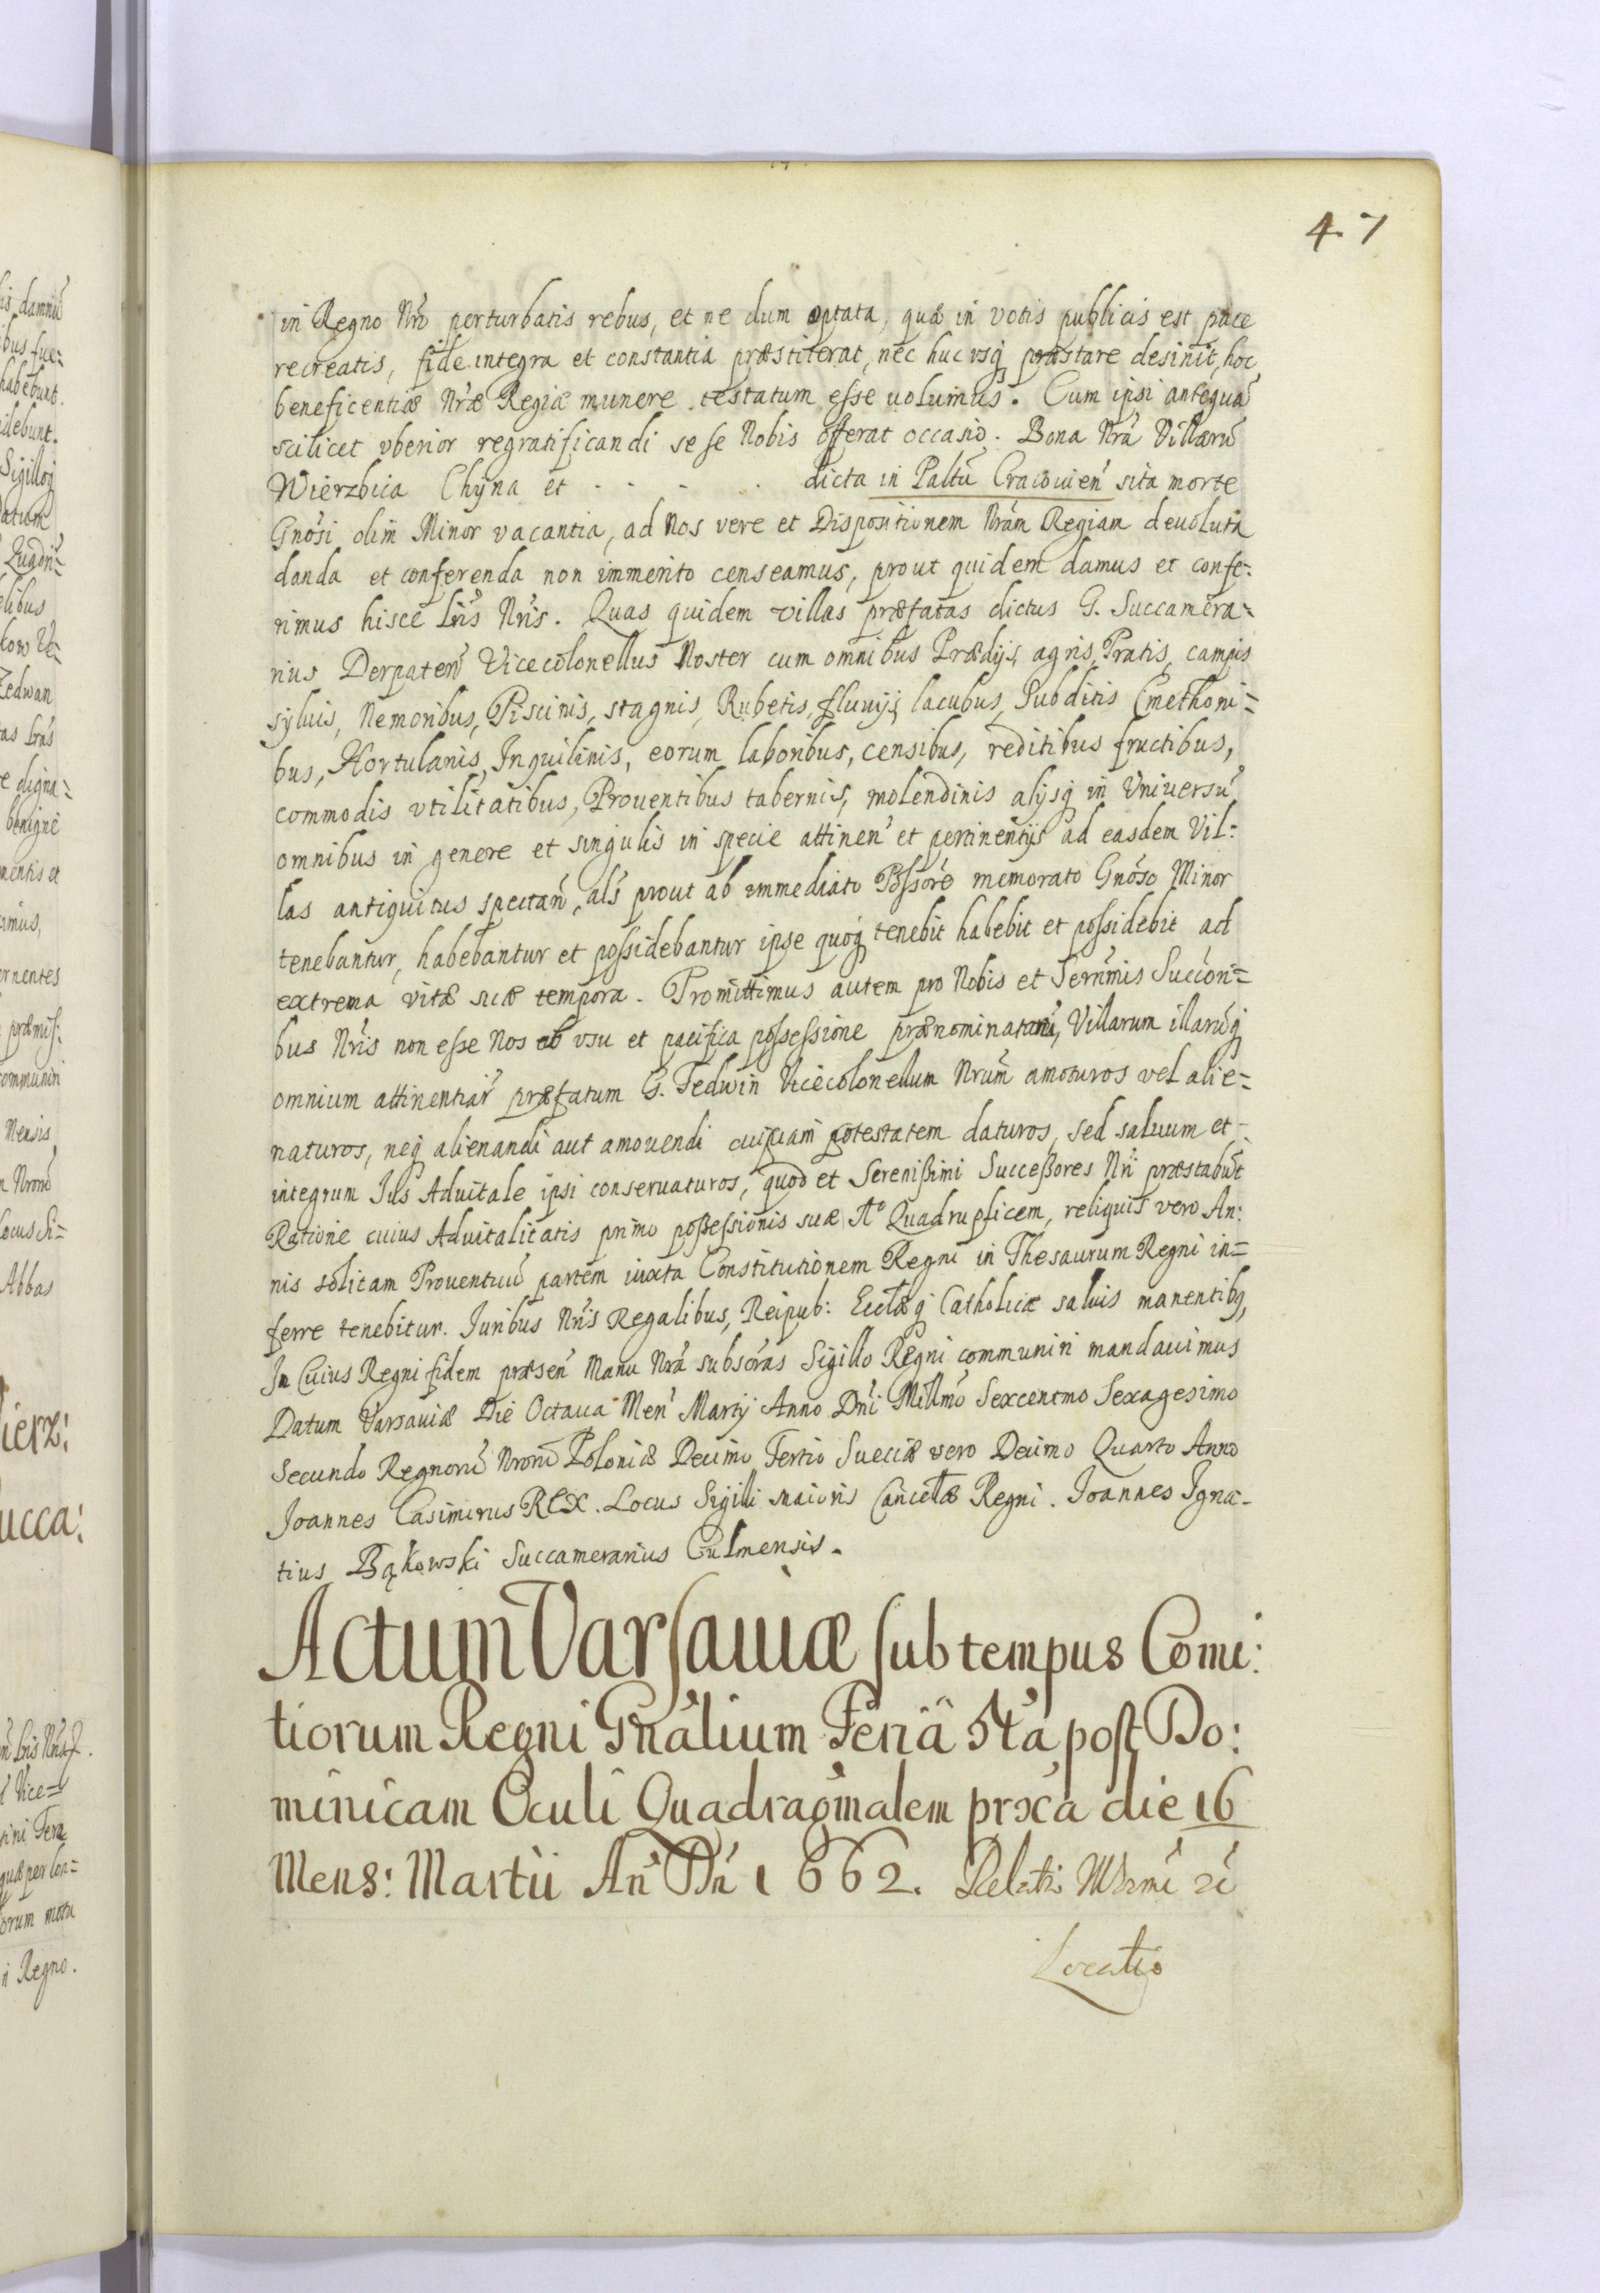 47
in Regno Nrô perturbatis rebus, et ne dum optata, quæ in votis publicis est pace
recreatis, fide integra et constantia præstiterat, nec huc vsq præstare desinit, hoc
beneficentiæ Nræ Regiæ munere testatum esse uolumus. Cum ipsi antequã
scilicet vberior regratificandi se se Nobis offerat occasio. Bona Nrã Villarũ
Wierzbica Chyna et - - - - dicta in Paltũ Cracouien̄ sita morte
Gnôsi olim Minor vacantia, ad Nos vere et Dispositionem Nrãm Regiam deuoluta
danda et conferenda non immerito censeamus, prout quidem damus et confe:
rimus hisce Lrîs Nrîs. Quas quidem villas præfatas dictus G. Succamera=
rius Derpateñ Vicecolonellus Noster cum omnibus Prædijs, agris, Pratis, campis
syluis, Nemoribus, Piscinis, stagnis, Rubetis, fluuijs, lacubus, Subditis Cmethoni=
bus, Hortulanis, Inquilinis, eorum laboribus, censibus, reditibus fructibus,
commodis vtilitatibus, Prouentibus tabernis, molendinis alijsq in Vniuersũ
omnibus in genere et singulis in specie attinen̄ et pertinentijs ad easdem Vil:
las antiquitus spectan̄, als̄ prout ab immediato Possôre memorato Gnôso Minor
tenebantur, habebantur et possidebantur ipse quoq tenebit habebit et possidebit ad
extrema vitæ suæ tempora. Promittimus autem pro Nobis et Serñmis Succori=
bus Nrîs non esse Nos ab vsu et pacifica possessione prænominatarũ, Villarum illarũq
omnium attinentiar̄ præfatum G. Tedwin Vicecolonellum Nrũm amoturos vel alie=
naturos, neq alienandi aut amouendi cuipiam potestatem daturos, sed saluum et
integrum Ius Aduitale ipsi conseruaturos, quod et Serenissimi Successores Nrî præstabũt
Ratione cuius Aduitalitatis primo possessionis suæ Aº Quadruplicem, reliquis vero An:
nis solitam Prouentuũ partem iuxta Constitutionem Regni in Thesaurum Regni in=
ferre tenebitur. Iuribus Nrîs Regalibus, Reipub: Ecclæq Catholicæ saluis manentibq,
In Cuius Regni fidem præsen̄ Manu Nrã subscrãs Sigillo Regni communiri mandauimus
Datum Varsauiæ Die Octaua Men̄ Martij Anno Dñi Millmô Sexcentmo Sexagesimo
Secundo Regnorũ Nrorũ Poloniæ Decimo Tertio Sueciæ vero Decimo Quarto Anno
Joannes Casimirus REX. Locus Sigilli maioris Cancellæ Regni. Joannes Igna-
tius Bąkowski Succamerarius Culmensis.
Actum Varsauiæ sub tempus Comi:
tiorum Regni Gnãlium Feriâ 5tâ post Do:
minicam Oculi Quadragm̃alem prõxa die 16
Mens: Martii Añ Dñ 1662.
Locatio